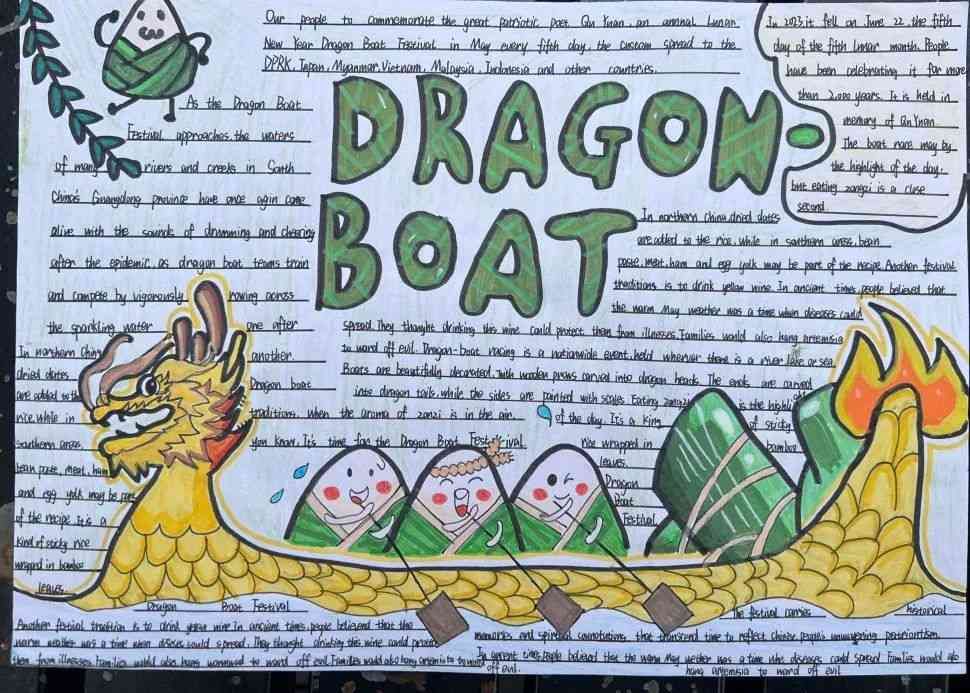 Our people to commemorate the great patriotic poet Qu Yuan, an annual Lunar
New Year Dragon Boat Festival in May every fifth day, the custom spread to the
DPRK, Japan, Myanmar, Vietnam, Malaysia, Indonesia and other countries.
In 2023, it fell on June 22. the fifth
day of the fifth lunar month. People
have been celebrating it for more
than 2,000 years. It is held in
memory of Qu Yuan
The boat race may by
the highlight of the day,
but eating zongzi is a close
second
As the Dragon Boat
Festival approaches, the waters
of many rivers and creeks in South
China's Guangdong province have once again come
alive with the sounds of drumming and cheering
after the epidemic, as dragon boat teams train
and compete by vigorously rowing across
the sparkling water one after
another
Dragon boat
traditions. When the aroma of zongzi is in the air,
you know. It's time for the Dragon Boat Festival
DRAGON-
BOAT
In northern china, dried dates
are added to the rice, while in southern areas, bean
paste, meat, ham and egg yolk may be part of the recipe. Another festival
traditions is to drink yellow wine. In ancient times, people believed that
the warm May weather was a time when diseases could
spread. They thought drinking this wine could protect them from illnesses. Families would also hang artemisia
to ward off evil. Dragon-boat racing is a nationwide event, held wherever there is a river lake or sea.
Boats are beautifully decorated, with wooden prows carved into dragon heads. The ends are carved
into dragon tails, while the sides are painted with scales. Eating zongzi is the highlight
of the day. It's a king of sticky
rice wrapped in bamboo
leaves.
Dragon
Boat
Festival.
In northern China
dried dates
are added to the
rice, while in
southern areas,
bean paste, meat, ham
and egg yolk may be part
of the recipe. It is a
kind of sticky rice
wrapped in bamboo
leaves
Dragon Boat Festival
Another festival tradition is to drink yellow wine In ancient times people believed that the
warm weather was a time when diseases could spread. They thought drinking this wine could protect
them from illnesses. Families would also hang wormwood to ward off evil. Families would also hang artemisia to ward
off evil.
The festival carries historical
memories and spiritual connotations, that transcend time to reflect Chinese people's unwavering patriotism.
In ancient times, people believed that the warm May wether was a time who diseases could spread Families would also
hang artemisia to ward off evil